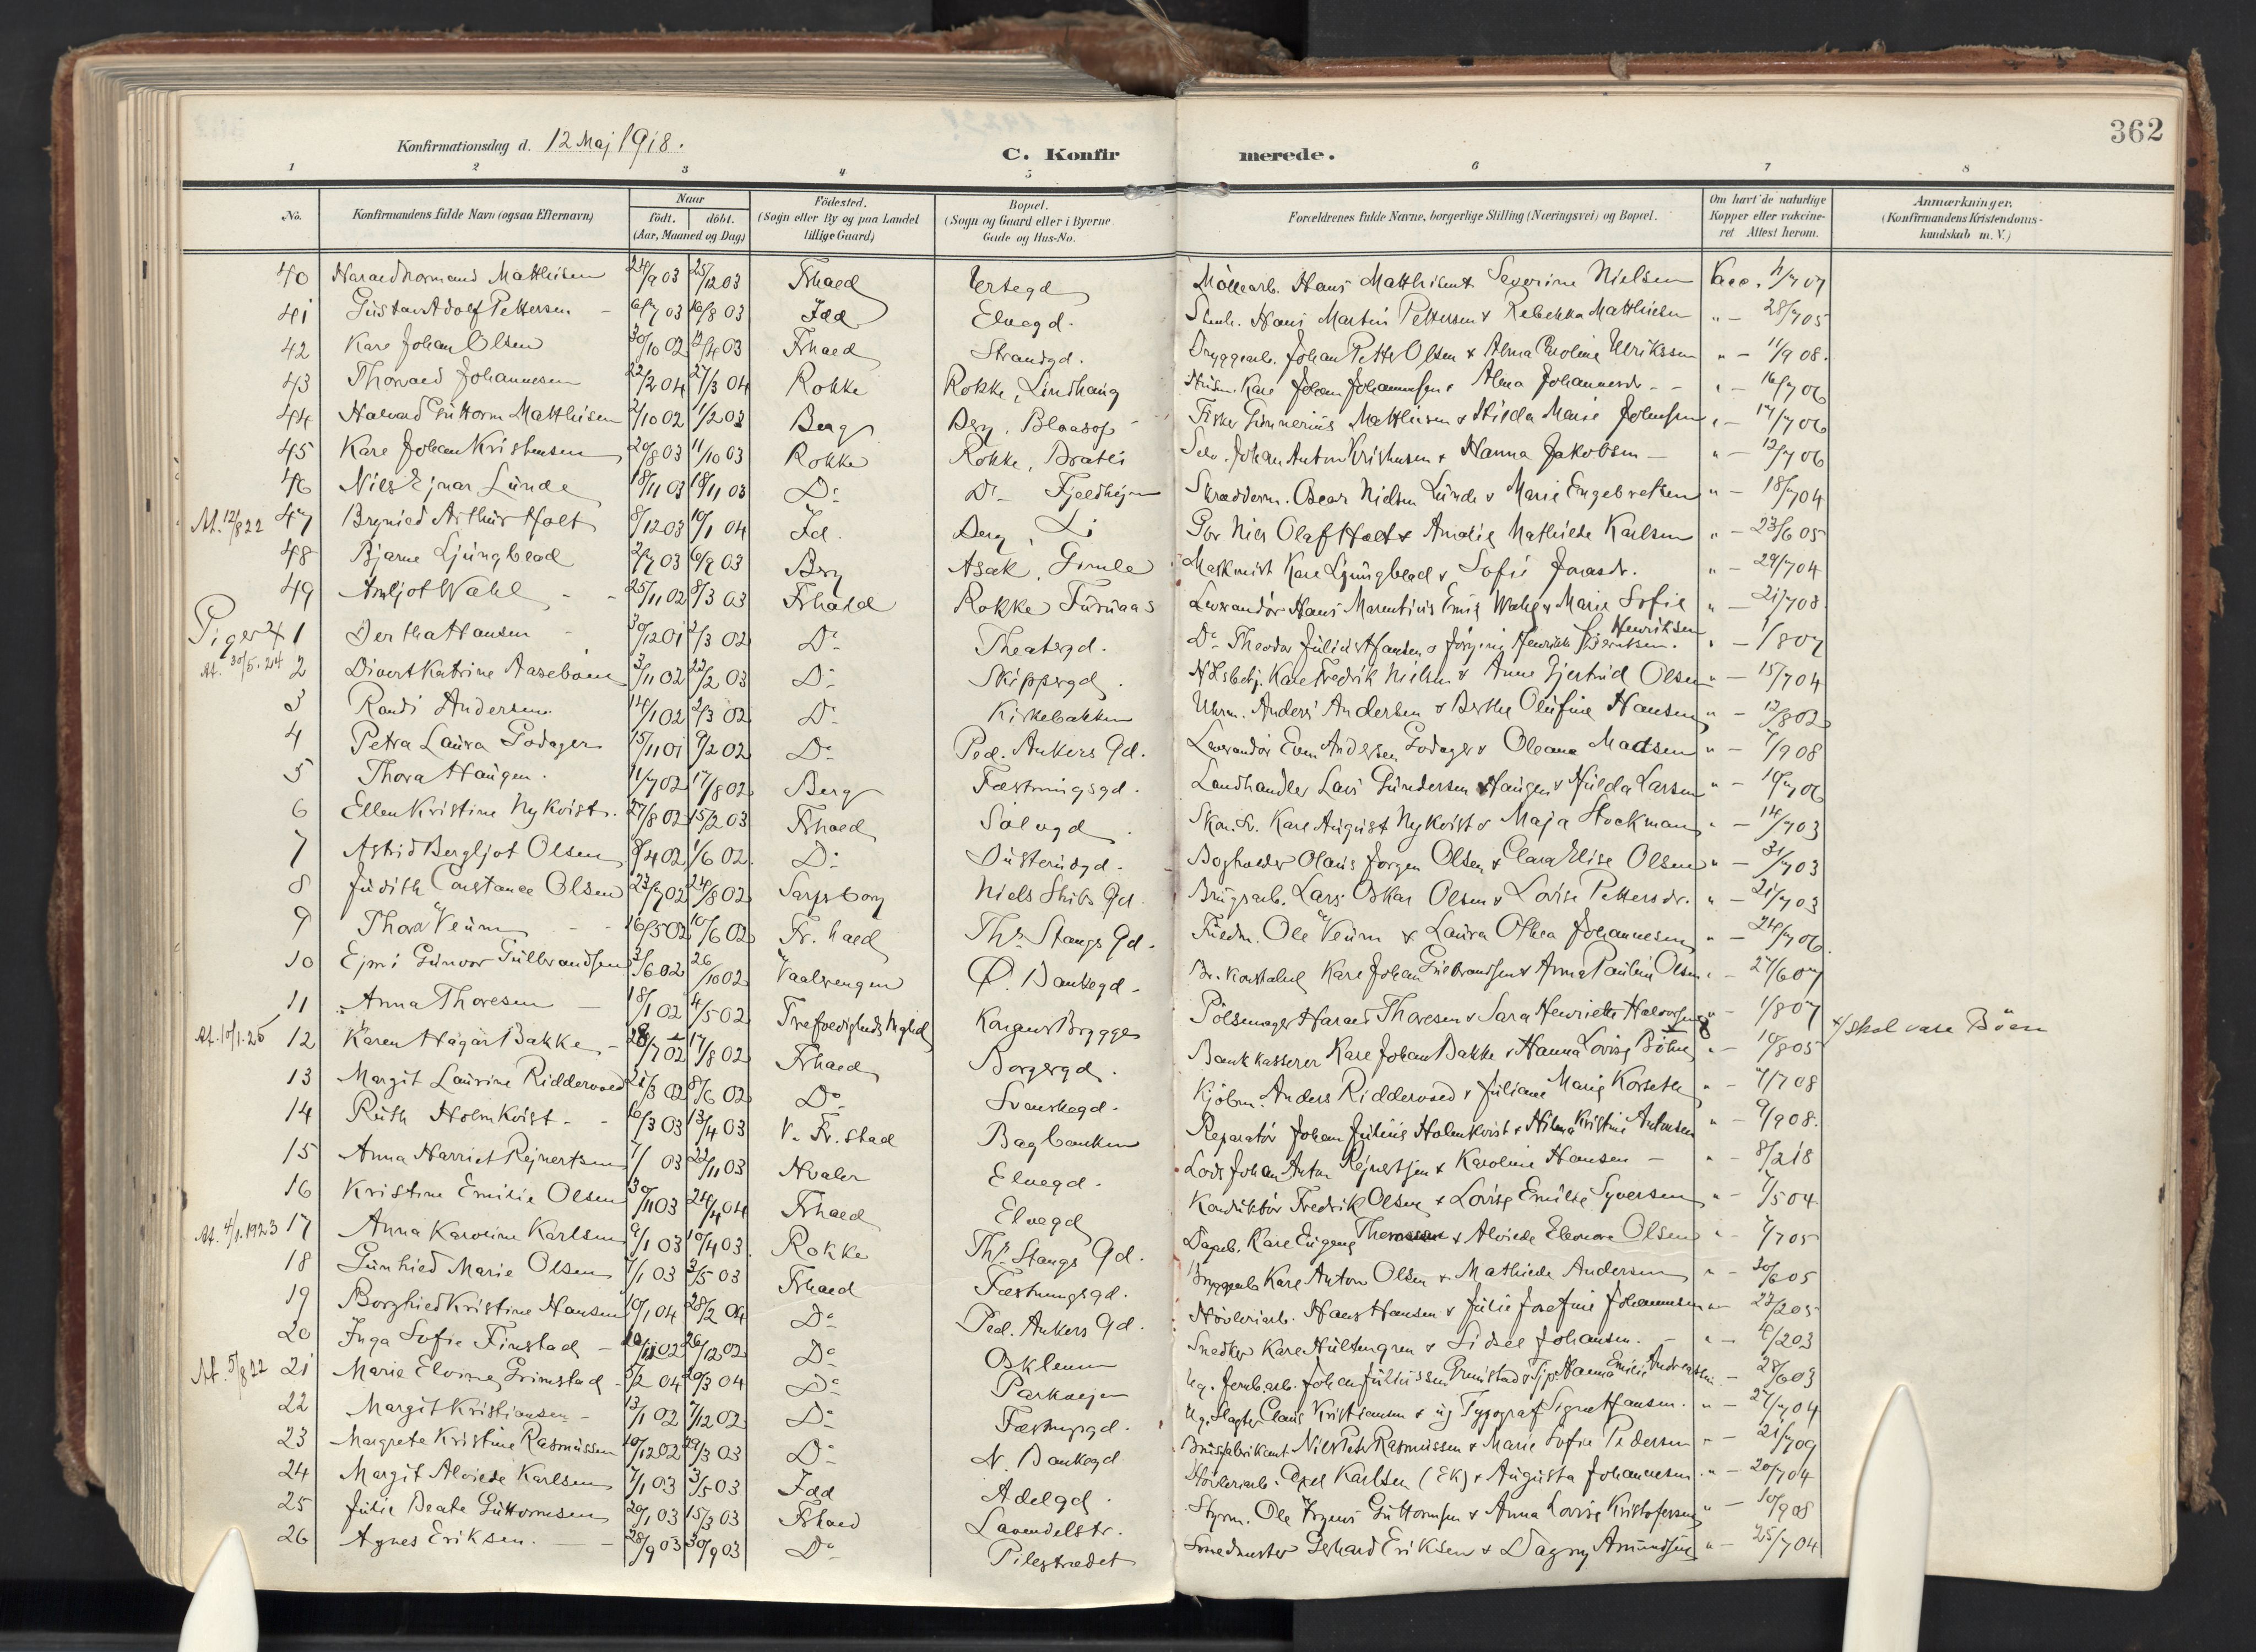 362
Konfirmationsdag d. 12 Maj 1918.
C. Konfirmerede.
1 2 3 4 5 6 7 8
No. Konfirmandens fulde Navn (ogsaa Efternavn) Naar født. døbt. (Aar, Maaned og Dag) Fødested. (Sogn eller By og paa Landet tillige Gaard) Bopæl. (Sogn og Gaard eller i Byerne Gade og Hus-No. Forældrenes fulde Navne, borgerlige Stilling (Næringsvei) og Bopæl. Om havt de naturlige Kopper eller vakcineret Attest herom. Anmærkninger. (Konfirmandens Kristendomskundskab m. V.)
40 Harald Normand Matthisen 24/9 03 25/12 03 Frhald Møllearb. Hans Matthisen & Severine Nielsen Vacc.
41 Gustav Adolf Pettersen 6/7 03 16/8 03 Idd Elvegd. Hans Martin Pettersen & Rebekka Matthisen " - 28/7 05
42 Karl Johan Olsen 30/10 02 Frhald Strandgd. Bryggearb. Johan Petter Olsen & Alma Caroline Ulrikssen " - 11/9 08.
43 Thorvald Johannesen 22/2 04 27/3 04 Rokke Rokke, Lindhaug Karl Johan Johannesen & Alma Johannesdr. - " - 16/7 06
44 Halvard Guttorm Matthisen 2/10 02 1/2 03 Berg Berg, Blaasop Fisker Gunnerius Matthisen & Hilda Marie Johansen " - 17/7 06
45 Karl Johan Kristensen 20/8 03 11/10 03 Rokke Rokke, Bratli Johan Anton Kristensen & Hanna Jakobsen - " - 12/7 06
46 Nils Ejnar Lunde 18/11 03 Do Do Fjeldhejm Skrædderm. Oscar Nielsen Lunde & Marie Engebretsen " - 18/7 04
At. 12/8 22 47 Brynild Arthur Holt 8/12 03 10/1 04 Id. Berg, Li Nils Olaf Holt & Amalie Mathilde Karlsen " - 23/6 05
48 Bjarne Ljungblad 2/7 03 6/9 03 Berg Asak, Gimle Maskinist Karl Ljungblad & Sofie Jonasdr. " - 29/7 04
49 Arnljot Wahl 25/11 02 8/3 03 Frhald Rokke Furuaas Leverandør Hans Marentinius Emil Wahl & Marie Sofie Henriksen " - 21/7 08.
Piger 1 Bertha Hansen 30/12 01 2/3 02 Do Theatergd. Do Theodor Julius Hansen & " - 1/8 07
At. 30/5. 24 2 Divert Katrine Aasebøen 3/11 02 22/2 03 Do Skippergd. Karl Fredrik Nielsen & Anne Gjertrud Olsen " - 15/7 04
3 Randi Andersen 14/1 02 2/3 02 Do Kirkebakken Uhrm. Anders Andersen & Berthe Olufine Hansen " - 12/8 02
4 Petra Laura Godager 15/11 01 9/2 02 Do Ped. Ankers Gd. Leverandør Even Andersen Godager & Oleana Madsen " - 1/9 08
5 Thora Haugen. 11/7 02 17/8 02 Berg Fæstningsgd. Landhandler Lars Gundersen Haugen & Hulda Larsen " -
6 Ellen Kristine Nykvist. 27/8 02 15/2 03 Frhald Sølvgd. Karl August Nykvist & Maja Stockman " - 14/7 03
7 Astrid Bergljot Olsen 8/4 02 1/6 02. Do Busterudgd. Bogholder Olaus Jørgen Olsen & Clara Elise Olsen " - 31/7 03
8 Judith Constance Olsen 23/7 02 24/8 02 Sarpsborg Niels Stibs Gd. Brugsarb. Lars Oskar Olsen & Lovise Pettersdr. " - 21/7 03
9 Thora Veum 16/5 02 10/6 02 Fr.hald Ths Stangs Gd. Ole Veum & Laura Othea Johannesen " - 24/7 06.
10 Ejni Gunvor Gulbrandsen 3/6 02 26/10 02 Vaalerengen Ø. Bankegd. Br. Konstabel Karl Johan Gulbrandsen & Anna Pauline Olsen " - 27/6 07
11 Anna Thoresen 18/1 02 4/5 02 Trefoldigheds Mghd Kongens Brygge Pølsemager Harald Thoresen & Sara Henriette Halvorsen " - 1/8 07
At. 10/1. 25 12 Karen Hagar Bakke 28/7 02 17/8 02 Frhald Borgergd. Bankkasserer Karl Johan Bakke & Hanna Lovise Bøhn " - 10/8 05 x/ skal være Bøen
13 Margit Laurine Riddervold 21/3 02 8/6 02 Do Svenskegd. Kjøbm. Anders Riddervold & Juliane Marie Korseth " - 1/7 08
14 Ruth Holmkvist - - 16/3 03 13/4 03 V. Fr.stad Bagbanken Reparatør Johan Julius Holmkvist & Hilma Kristine Antonsen " - 9/9 08.
15 Anna Harriet Rejnertsen 7/ 03 22/11 03 Hvaler Elvegd. Lods Johan Anton Rejnertsen & Karoline Hansen - " - 8/2 18
16 Kristine Emilie Olsen 30/11 03 24/4 04 Frhald Elvegd Konduktør Fredrik Olsen & Lovise Emilie Syversen " - 7/5 04
At. 4/1. 1923 17 Anna Karoline Karlsen 9/1 03 10/4 03 Rokke Ths Stangs Gd. Karl Eugene & Alvilde Eleonore Olsen " - 7/7 05
18 Gunhild Marie Olsen 7/1 03 3/5 03 Frhald Fæstningsgd. Bryggearb Karl Anton Olsen & Mathilde Andersen " - 30/6 05
19 Borghild Kristine Hansen 10/1 04 28/2 04 Do Ped. Ankers Gd. Høvleriarb. Hans Hansen & Julie Josefine Johannesen " - 27/2 05
20 Inga Sofie Finstad 26/12 02 Do Oskleven Snedker Karl Hultengren & Sidsel Johansen. - " - 4/2 03
At. 5/8 22 21 Marie Elvine Grimstad 5/2 04 20/3 04 Do Parkvejen Ug. Jernb.arb. Johan Juliussen Grimstad & Hanna Emilie Andreassen - 28/6 03
22 Margit Kristiansen - 13/1 02 7/12 02 Do Fæstngsgd. Ug. Slagter Claus Kristiansen & ug Typograf Signe Hansen. " - 27/7 04
23 Margrete Kristine Rasmussen 10/12 02 29/3 03 Do N. Bankegd Brusfabrikant Nils Peter Rasmussen & Marie Sofie Pedersen " - 21/7 09
24 Margit Alvilde Karlsen 7/1 03 3/5 03 Idd Adelgd. Høvleriarb. Axel Karlsen (Ek) & Augusta Johannesen " - 20/7 04
25 Julie Beate Guttormsen 20/1 03 15/3 03 Frhald Lavendelstr. Styrm. Ole Guttormsen & Anna Lovise Kristofersen " - 10/9 08
26 Agnes Eriksen. 28/9 03 30/9 03 Do Pilestrædet Smedmester Gerhard Eriksen & Dagny Amundsen " - 25/7 04